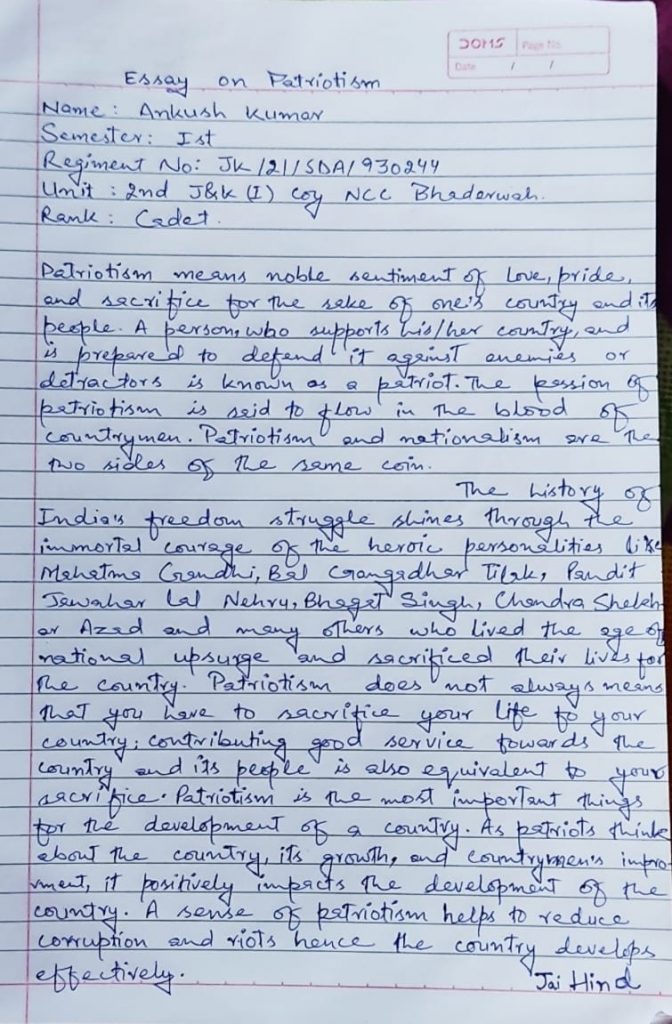 DOMS Page No.
Date / /
Essay on Patriotism
Name : Ankush Kumar
Semester : Ist
Regiment No: JK/21/SDA/930244
Unit : 2nd J&K (I) Coy NCC Bhaderwah.
Rank : Cadet.
Patriotism means noble sentiment of love, pride,
and sacrifice for the sake of one's country and its
people. A person, who supports his/her country, and
is prepared to defend it against enemies or
detractors is known as a patriot. The passion of
patriotism is said to flow in the blood of
countrymen. Patriotism and nationalism are the
two sides of the same coin.
The history of
India's freedom struggle shines through the
immortal courage of the heroic personalities like
Mahatma Gandhi, Bal Gangadhar Tilak, Pandit
Jawahar Lal Nehru, Bhagat Singh, Chandra Shekh
ar Azad and many others who lived the age of
national upsurge and sacrificed their lives for
the country. Patriotism does not always means
that you have to sacrifice your life fo your
country; contributing good service towards the
country and its people is also equivalent to your
sacrifice. Patriotism is the most important things
for the development of a country. As patriots think
about the country, its growth, and countrymen's impro
vment, it positively impacts the development of the
country. A sense of patriotism helps to reduce
corruption and riots hence the country develops
effectively. Jai Hind